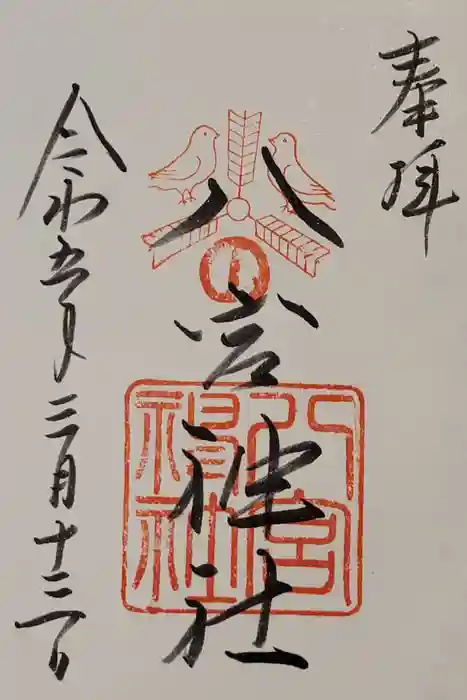 奉拝
八宮神社
八宮神社
令和五年三月十三日